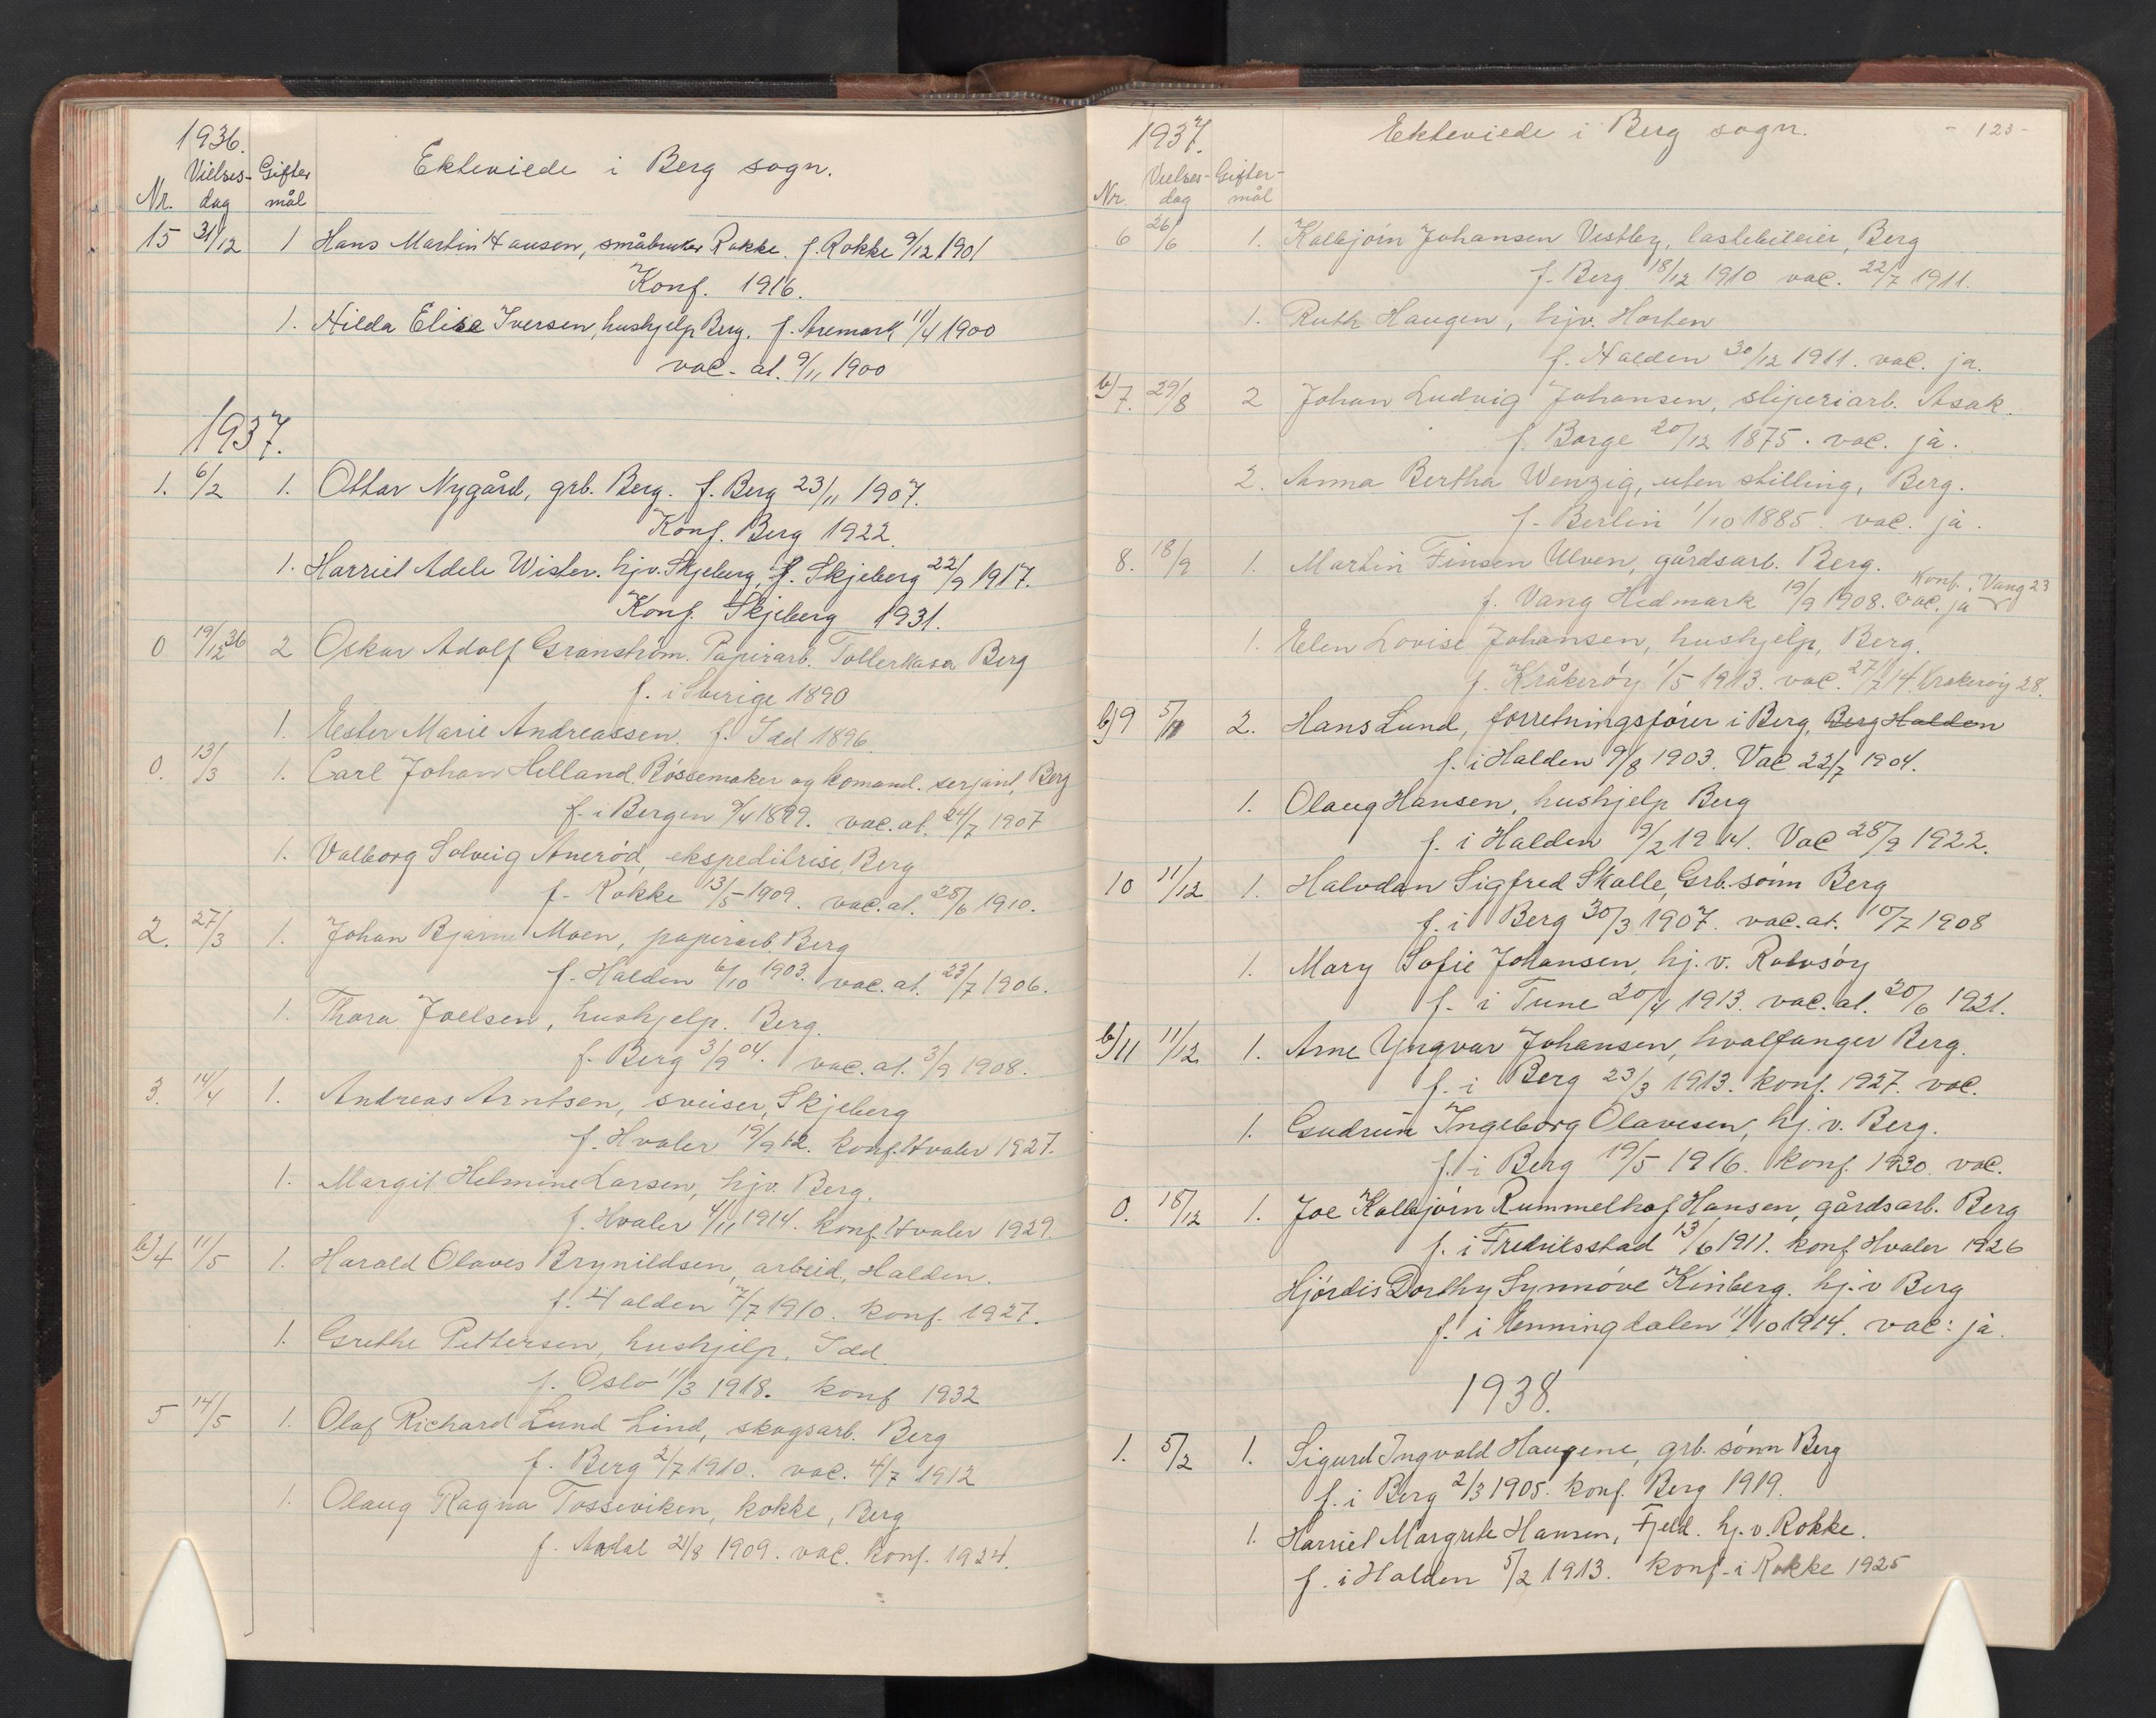 1936.
Ekteviede i Berg sogn.
Nr. Vielses-dag Giftermål
15 31/12 1 Hans Martin Hansen, småbruker Rokke. f. Rokke 9/12 1901
Konf. 1916.
1. Hilda Elise Iversen, hushjelp Berg. f. Aremark 11/4 1900
vac. at. 9/11 1900
1937.
1. 6/2 1. Ottar Nygård, grb. Berg. f. Berg 23/11 1907.
Konf. Berg 1922.
1. Harriet Adele Wister. hjv. Skjeberg, f. Skjeberg 22/9 1917.
Konf. Skjeberg 1931.
0 19/12 36 2 Oskar Adolf Granström. Papirarb. Tollerkasa Berg
f. i Sverige 1890
1. Ester Marie Andreassen. f. Idd 1896.
0. 13/3 1. Carl Johan Helland. Bøssemaker og komand. serjant, Berg
f. i Bergen 9/4 1899. vac. at. 24/7 1907
1. Valborg Solveig Anerød, ekspeditrise, Berg
f. Rokke 13/5 - 1909. vac. at. 28/6 1910.
2. 27/3 1. Johan Bjarne Moen, papirarb. Berg
f. Halden 6/10 1903. vac. at. 23/7 1906.
1. Thora Joelsen, hushjelp. Berg.
f. Berg 3/9 04. vac. at. 3/9 1908.
3. 14/4 1. Andreas Arntsen, sveiser, Skjeberg
f. Hvaler 19/9 12. konf. Hvaler 1927.
1. Margit Helmine Larsen, hjv. Berg.
f. Hvaler 4/11 1914. konf. Hvaler 1929.
b) 4 11/5 1. Harald Olaves Brynildsen, arbeid, Halden.
f. Halden 7/7 1910. konf. 1927.
1. Grethe Pettersen, hushjelp, Idd.
f. Oslo 11/3 1918. konf 1932
5 14/5 1. Olaf Richard Lund Lind, skogsarb. Berg
f. Berg 2/7 1910. vac. 4/7 1912
1. Olaug Ragna Tosseviken, kokke, Berg
f. 21/8 1909. vac. konf. 1924.
1937.
Ekteviede i Berg sogn. - 123 -
Nr. Vielses-dag Gifter-mål
6 26/6 1. Kolbjørn Johansen Vestby, lastebileier, Berg
f. Berg 18/12 1910 vac. 22/7 1911.
1. Ruth Haugen, hjv. Horten
f. Halden 30/12 1911. vac. ja.
b) 7. 29/8 2 Johan Ludvig Johansen, sliperiarb. Asak.
f. Borge 20/12 1875. vac. ja.
2. Anna Bertha Wenzig, uten stilling, Berg.
f. Berlin 1/10 1885. vac. ja.
8. 18/9 1. Martin Finsen Ulven, gårdsarb. Berg.
f. Vang Hedmark 19/9 1908. vac. ja Konf. Vang 23
1. Elen Lovise Johansen, hushjelp, Berg.
f. Kråkerøy 1/5 1913. vac. 27/7 14. Kråkerøy 28.
b) 9 5/11 2. Hans Lund, forretningsfører i Berg, Berg Halden
f. i Halden 9/8 1903. Vac 22/7 1904.
1. Olaug Hansen, hushjelp Berg
f. i Halden 9/2 1914. Vac 28/9 1922.
10 11/12 1. Halvdan Sigfred Skolle, Grb. sønn Berg
f. i Berg 30/3 1907. vac. at. 10/7 1908
1. Mary Sofie Johansen, hj. v. Rolvsøy
f. i Tune 20/4 1913. vac. at. 20/6 1921.
b) 11 11/12 1. Arne Yngvar Johansen, hvalfanger Berg.
f. i Berg 23/3 1913. konf. 1927. vac.
1. Gudrun Ingeborg Olavesen, hj. v. Berg.
f. i Berg 19/5 1916. konf. 1930. vac.
0. 18/12 1. Joe Kolbjørn Rummelhof Hansen, gårdsarb. Berg
f. i Fredriksstad 13/6 1911. konf Hvaler 1926
Hjørdis Dorthy Synnøve Kinberg. hj. v Berg
f. i Enningdalen 11/10 1914. vac: ja.
1938.
1. 5/2 1. Sigurd Ingvald Haugene, grb. sønn Berg
f. i Berg 2/3 1905. konf. Berg 1919.
1. Harriet Margrete Hansen, Fjeld. hj. v. Rokke.
f. i Halden 5/2 1913. konf. i Rokke 1925